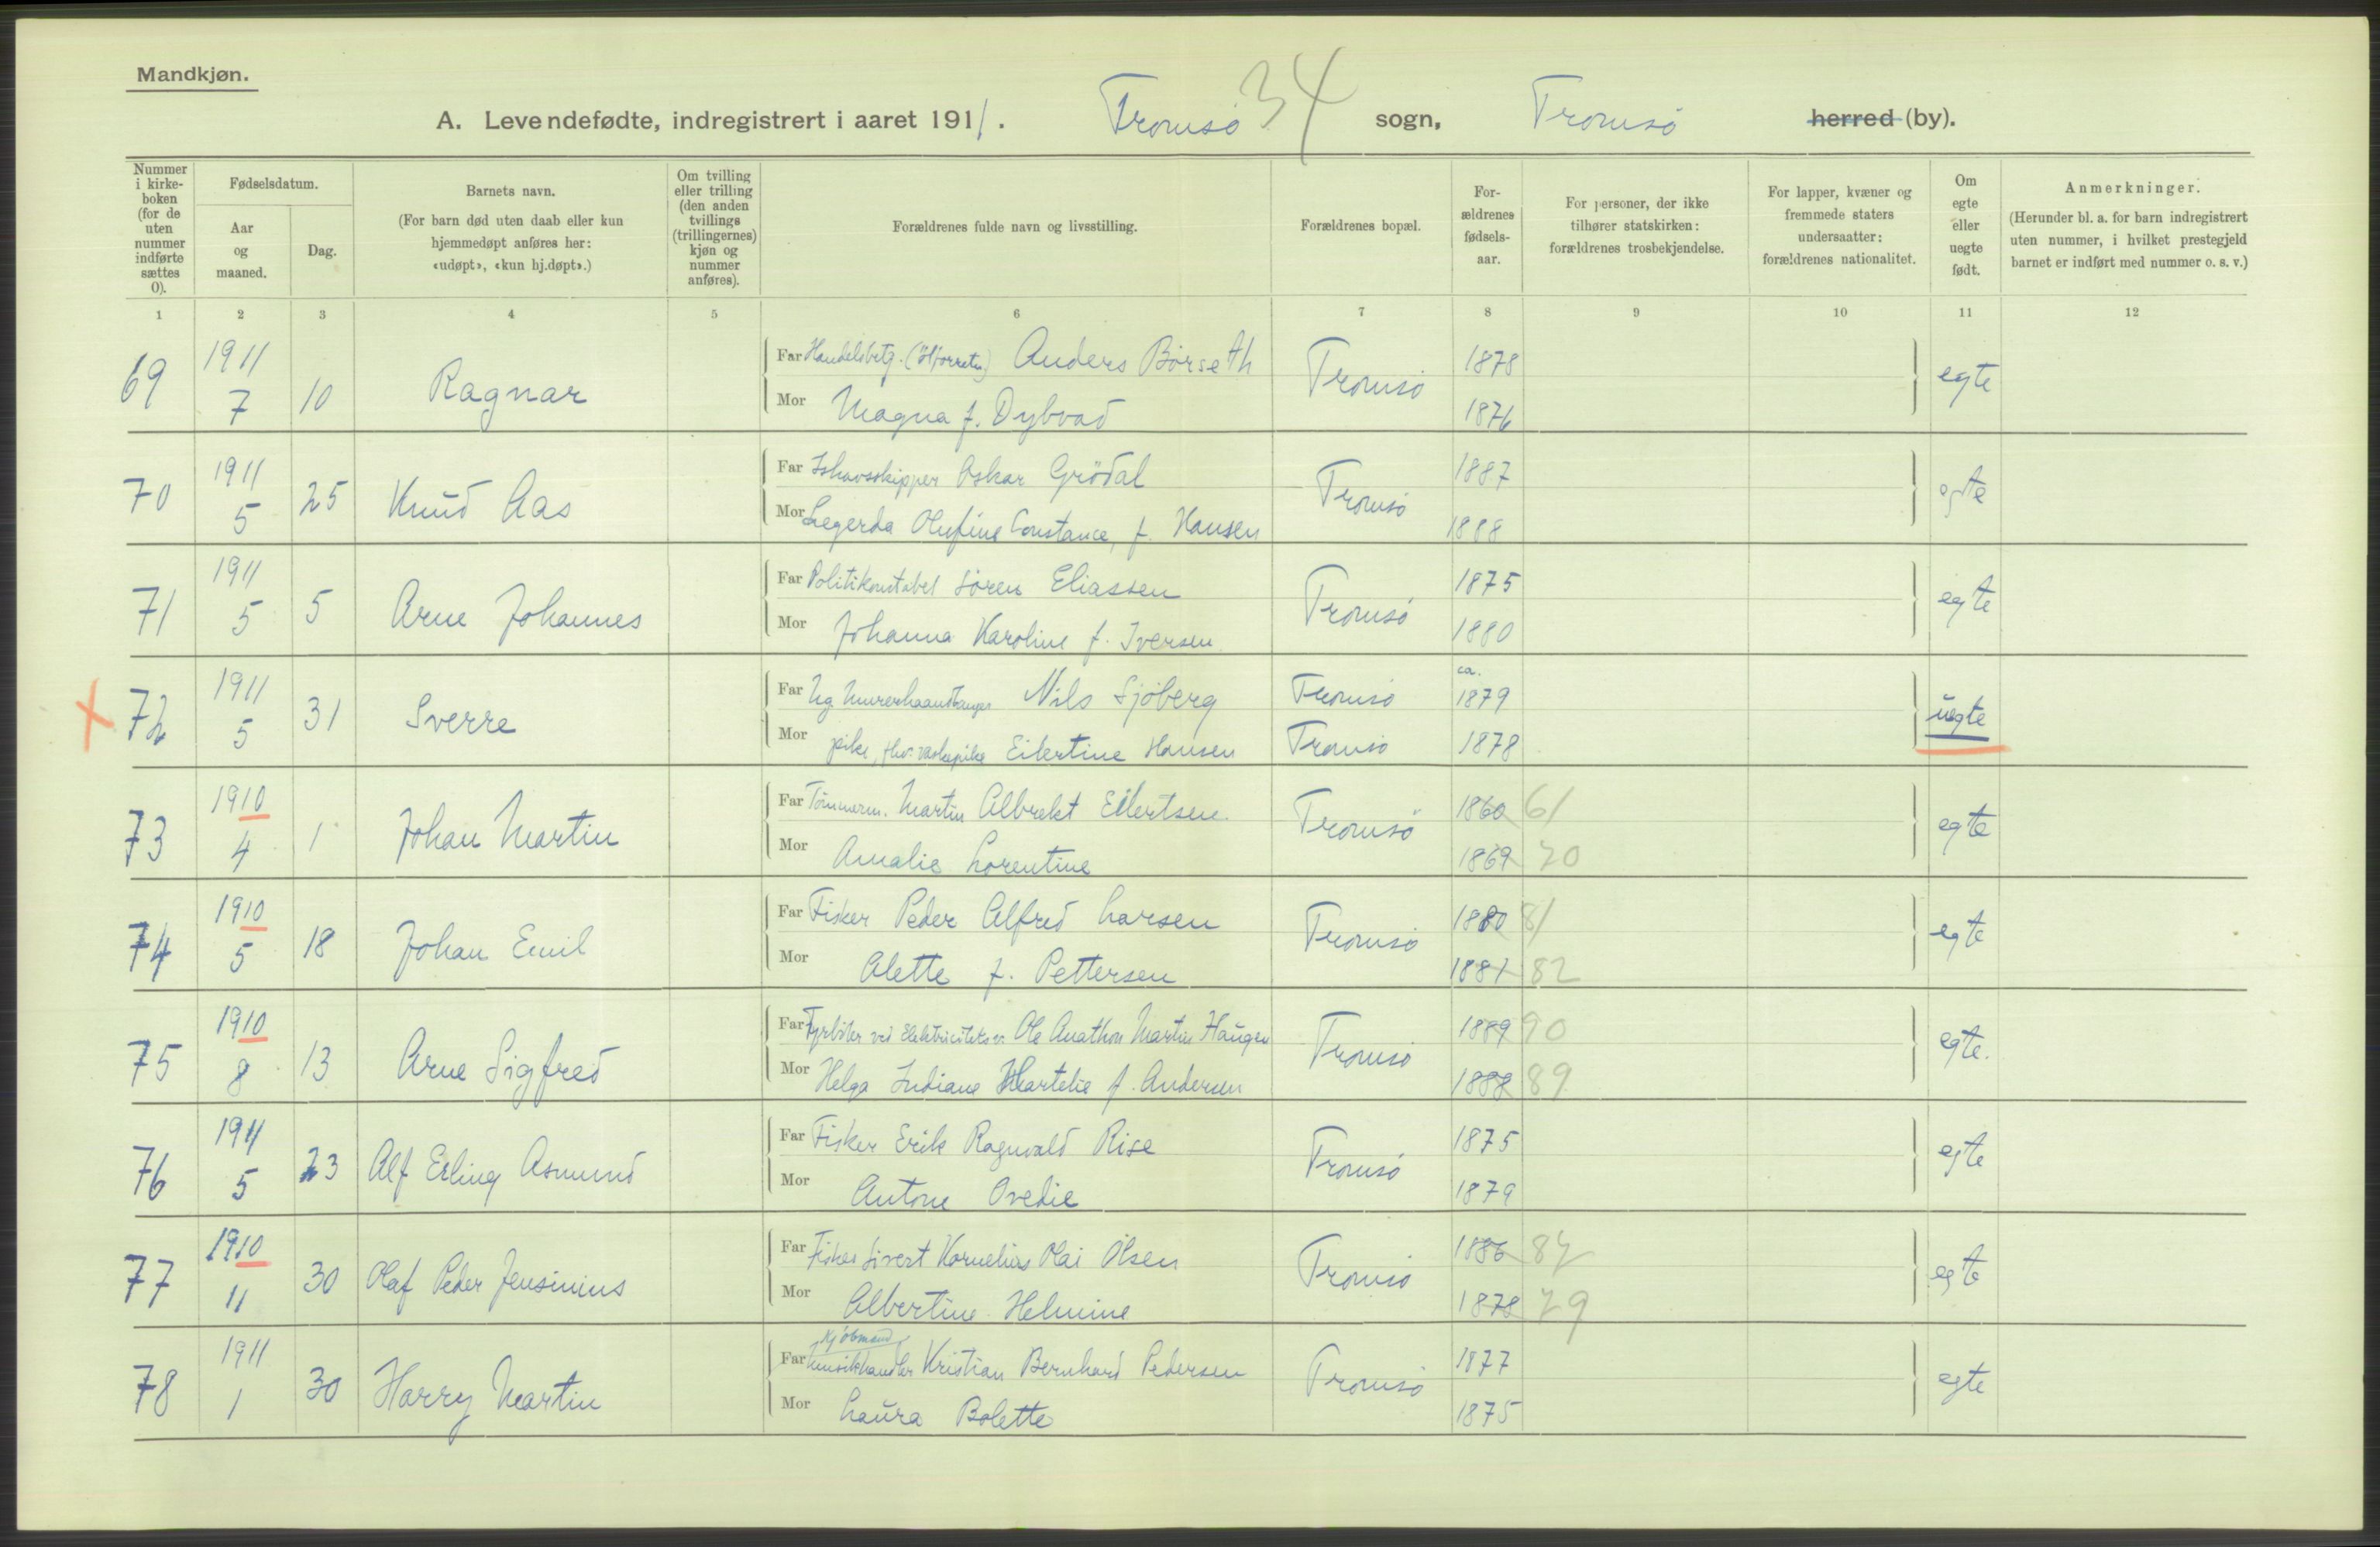 Mandkjøn.
34
A. Levendefødte, indregistrert i aaret 1911. Tromsø sogn, Tromsø herred (by).
Nummer i kirke-boken (for de uten nummer indførte sættes 0).
Fødselsdatum.
Aar og maaned.
Dag.
Barnets navn.
(For barn død uten daab eller kun hjemmedøpt anføres her: «udøpt», «kun hj.døpt».)
Om tvilling eller trilling (den anden tvillings (trillingernes) kjøn og nummer anføres).
Forældrenes fulde navn og livsstilling.
Forældrenes bopæl.
For-ældrenes fødsels-aar.
For personer, der ikke tilhører statskirken: forældrenes trosbekjendelse.
For lapper, kvæner og fremmede staters undersaatter: forældrenes nationalitet.
Om egte eller uegte født.
Anmerkninger.
(Herunder bl. a. for barn indregistrert uten nummer, i hvilket prestegjeld barnet er indført med nummer o. s. v.)
1 2 3 4 5 6 7 8 9 10 11 12
69 1911 7 10 Ragnar Far Anders Börseth Tromsö 1878 egte
Mor Magna f. Dybvad 1876
70 1911 5 25 Knud Aas Far Ishavsskipper Oskar Grödal Tromsö 1887 egte
Mor Segerda Olufine Constance, f. Hansen 1888
71 1911 5 5 Arne Johannes Far Politikonstabel Sören Eliassen Tromsö 1875 egte
Mor Johanna Karoline f. Iversen 1880
X 72 1911 5 31 Sverre Far Ug. Nils Sjöberg Tromsö ca. 1879 uegte
Mor pike, Eilertine Hansen Tromsö 1878
73 1910 4 1 Johan Martin Far Tömmerm. Martin Albrekt Eilertsen Tromsö 1860 61 egte
Mor Amalie Lorentine 1869 70
74 1910 5 18 Johan Emil Far Fisker Peder Alfred Larsen Tromsö 1880 81 egte
Mor Alette f. Pettersen 1881 82
75 1910 8 13 Arne Sigfred Far Fyrböter ved Elektricitetsv. Ole Anathon Martin Haugen Tromsö 1889 90 egte.
Mor Helga Indiane f. Andersen 1888 89
76 1911 5 23 Alf Erling Asmund Far Fisker Erik Ragnvald Rise Tromsö 1875 egte
Mor Antone Ovedie 1879
77 1910 11 30 Olaf Peder Jensinius Far Fisker Sivert Kornelius Olai Olsen Tromsö 1886 87 egte
Mor Albertine Helmine 1878 79
Kjöbmand
78 1911 1 30 Harry Martin Far musikhandler Kristian Bernhard Pedersen Tromsö 1877 egte
Mor Laura Bolette 1875